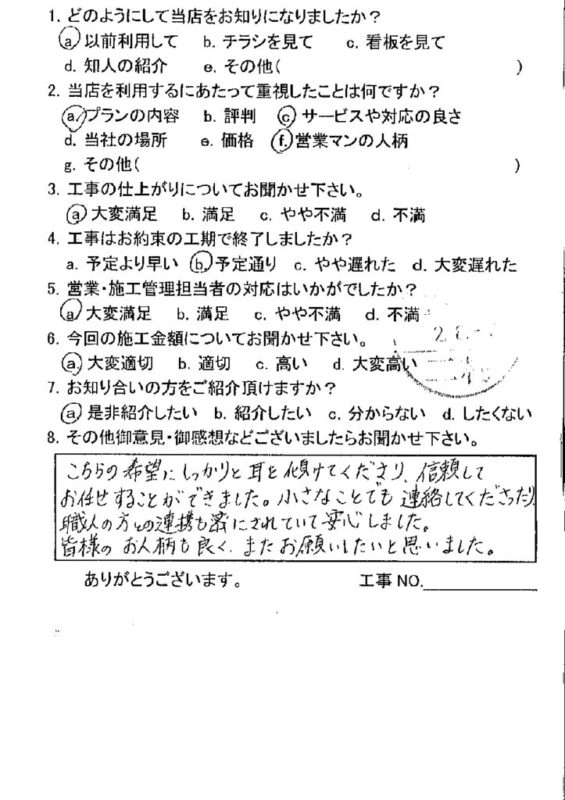 1. どのようにして当店をお知りになりましたか?
a 以前利用して b. チラシを見て c. 看板を見て
d. 知人の紹介 e. その他( )
2. 当店を利用するにあたって重視したことは何ですか?
a. プランの内容 b. 評判 c. サービスや対応の良さ
d. 当社の場所 e. 価格 f. 営業マンの人柄
g. その他( )
3. 工事の仕上がりについてお聞かせ下さい。
a 大変満足 b. 満足 c. やや不満 d. 不満
4. 工事はお約束の工期で終了しましたか?
a. 予定より早い b. 予定通り c. やや遅れた d. 大変遅れた
5. 営業・施工管理担当者の対応はいかがでしたか?
a 大変満足 b. 満足 c. やや不満 d. 不満
6. 今回の施工金額についてお聞かせ下さい。
a. 大変適切 b. 適切 c. 高い d. 大変高い
7. お知り合いの方をご紹介頂けますか?
a 是非紹介したい b. 紹介したい c. 分からない d. したくない
8. その他御意見・御感想などございましたらお聞かせ下さい。
こちらの希望にしっかりと耳を傾けてくださり、信頼して
お任せすることができました。小さなことでも連絡してくださったり、
職人の方との連携も密にされていて安心しました。
皆様のお人柄も良く、またお願いしたいと思いました。
ありがとうございます。 工事 NO.